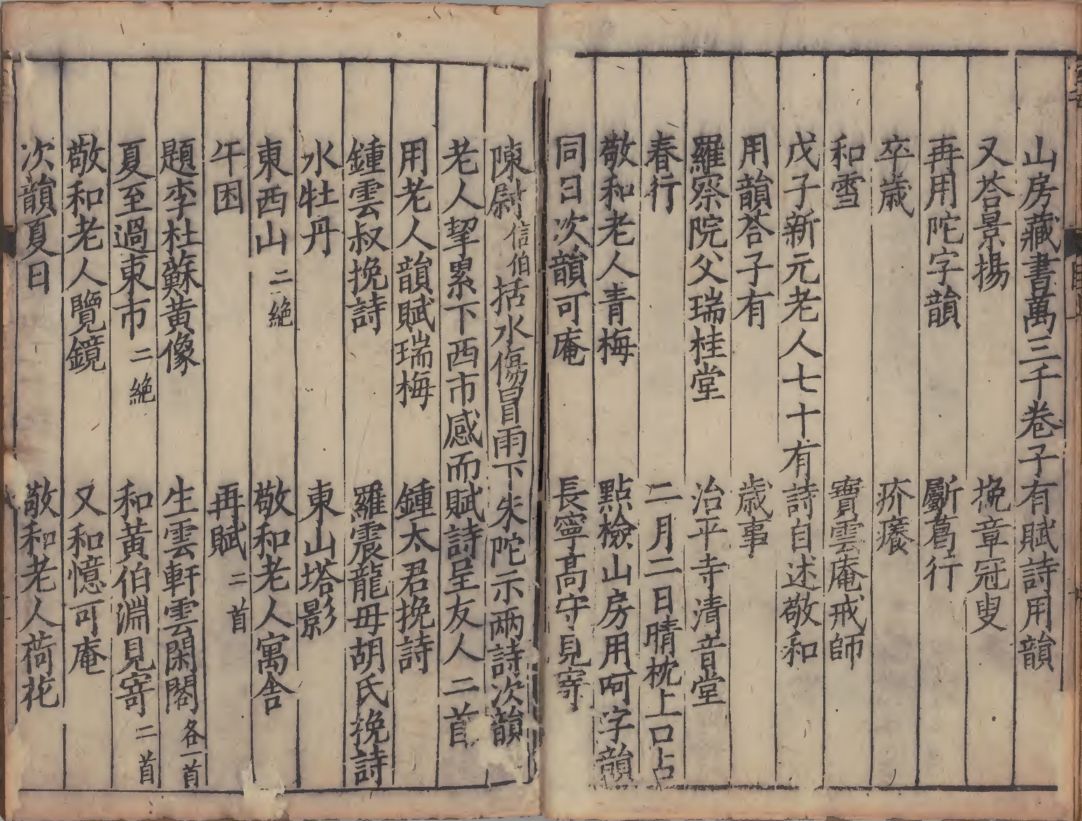 山房藏書萬三千卷子有賦詩用韻
又荅景揚　挽章冠叟
再用陀字韻　斸葛行
卒歲　疥癢
和雪　寶雲庵戒師
戊子新元老人七十有詩自述敬和
用韻荅子有　歲事
羅察院父瑞桂堂　治平寺清音堂
春行　二月二日晴枕上口占
敬和老人青梅　點檢山房用呵字韻
同日次韻可庵　長寧高守見寄
陳尉信伯括水傷冒雨下朱陀示兩詩次韻
老人挈累下西市感而賦詩呈友人二首
用老人韻賦瑞梅　鍾太君挽詩
鍾雲叔挽詩　羅震龍母胡氏挽詩
水牡丹　東山塔影
東西山二絶　敬和老人寓舍
午困　再賦二首
題李杜蘇黃像　生雲軒雲閑閣各一首
夏至過東市二絶　和黃伯淵見寄二首
敬和老人覽鏡　又和憶可庵
次韻夏日　敬和老人荷花